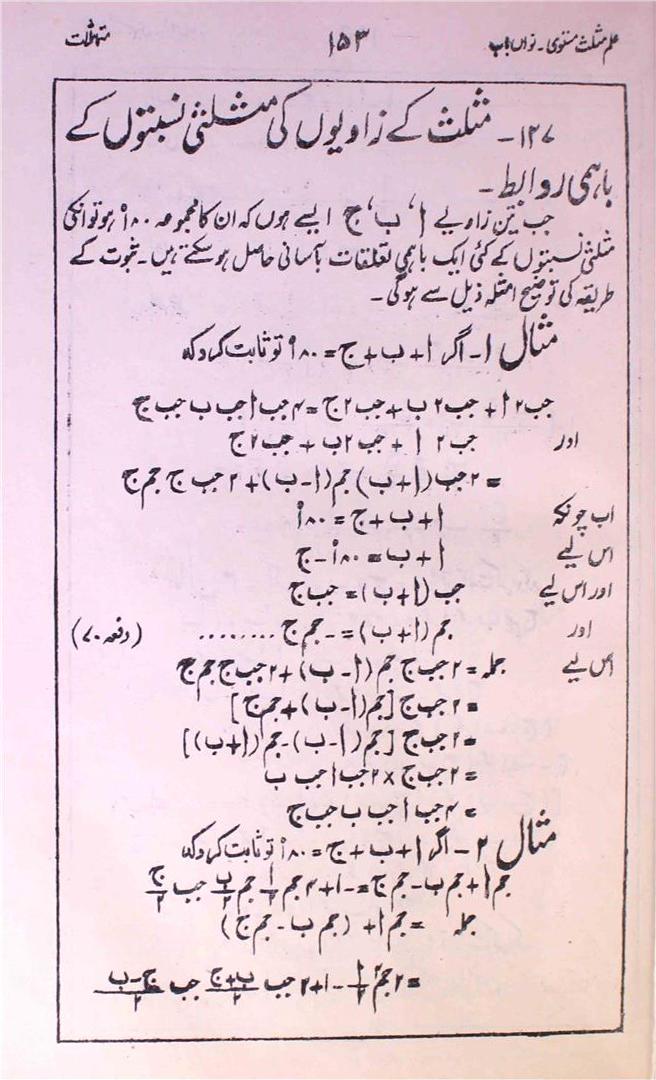 علم مثلث مستوی۔ نواں باب ۱۵۳ متماثلات
۱۲۷۔ مثلث کے زاویوں کی مثلثی نسبتوں کے
باہمی روابط۔
جب تین زاویے ا، ب، ج ایسے ہوں کہ ان کا مجموعہ ۱۸۰° ہو تو انکی
مثلثی نسبتوں کے کئی ایک باہمی تعلقات بآسانی حاصل ہو سکتے ہیں۔ ثبوت کے
طریقہ کی توضیح امثلہ ذیل سے ہوگی۔
مثال ۱۔ اگر ا + ب + ج = ۱۸۰° تو ثابت کرو کہ
جب ۲ ا + جب ۲ ب + جب ۲ ج = ۴ جب ا جب ب جب ج
اور جب ۲ ا + جب ۲ ب + جب ۲ ج
= ۲ جب (ا + ب) جم (ا - ب) + ۲ جب ج جم ج
اب چونکہ ا + ب + ج = ۱۸۰°
اس لیے ا + ب = ۱۸۰° - ج
اور اس لیے جب (ا + ب) = جب ج
اور جم (ا + ب) = - جم ج ........ (دفعہ ۷۰)
اس لیے جملہ = ۲ جب ج جم (ا - ب) + ۲ جب ج جم ج
= ۲ جب ج [جم (ا - ب) + جم ج]
= ۲ جب ج [جم (ا - ب) - جم (ا + ب)]
= ۲ جب ج × ۲ جب ا جب ب
= ۴ جب ا جب ب جب ج
مثال ۲۔ اگر ا + ب + ج = ۱۸۰° تو ثابت کرو کہ
جم ا + جم ب - جم ج = - ۱ + ۴ جم ا/۲ جم ب/۲ جب ج/۲
جملہ = جم ا + (جم ب - جم ج)
= ۲ جم² ا/۲ - ۱ + ۲ جب ب+ج/۲ جب ج-ب/۲